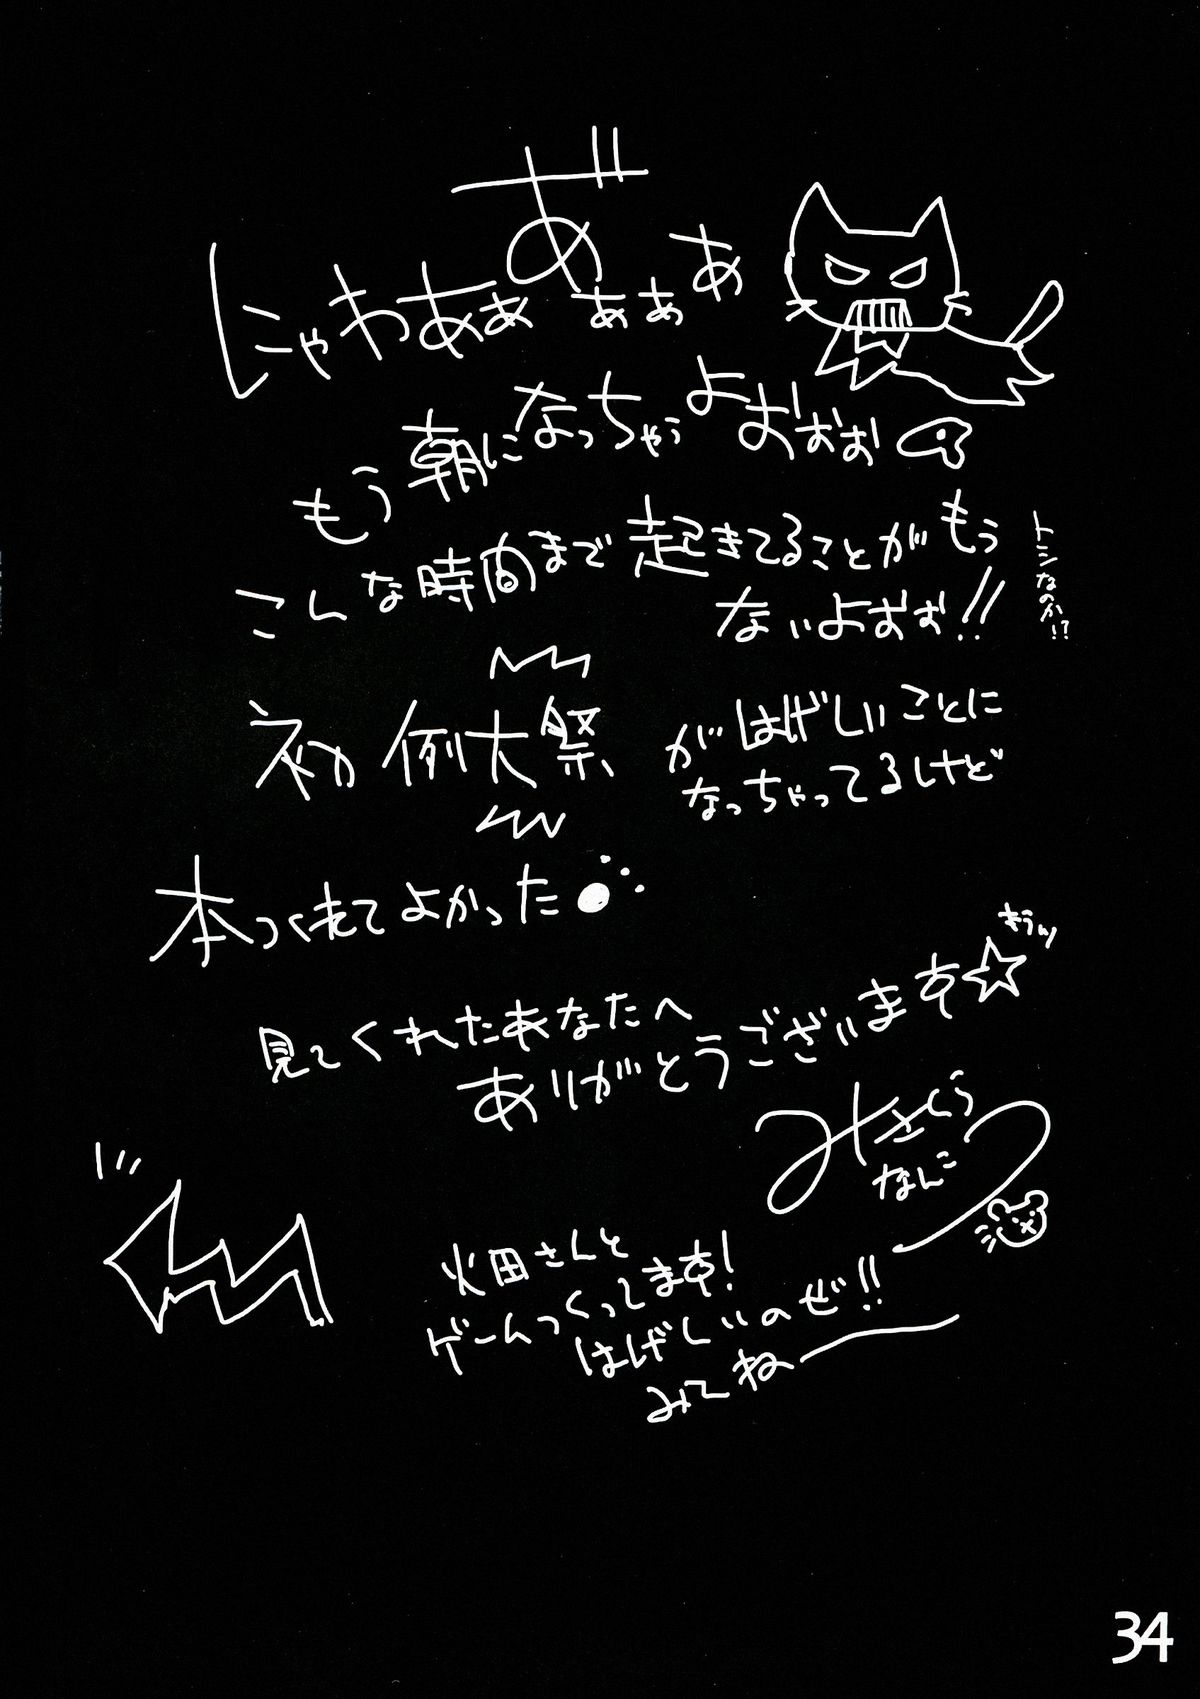 にゃわあぁぁあ゛ぁぁあ
もう朝になっちゃうよおぉぉぉ
こんな時間まで起きてることがもう
ないよおぉぉ!!
トシなのか!?
初例大祭
がはげしいことに
なっちゃってるけど
本つくれてよかった
見てくれたあなたへ
ありがとうございます☆
きらん
みさくら
なんこ
火田さんと
ゲームつくってます!
はげしいのぜ!!
みてねー
34